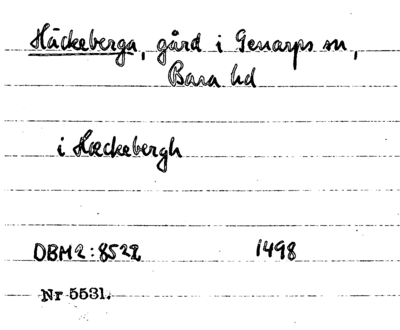 Häckeberga, gård i Genarps sn,
Bara hd
i Hæckebergh
DBM2:8522 1498
Nr 5531.